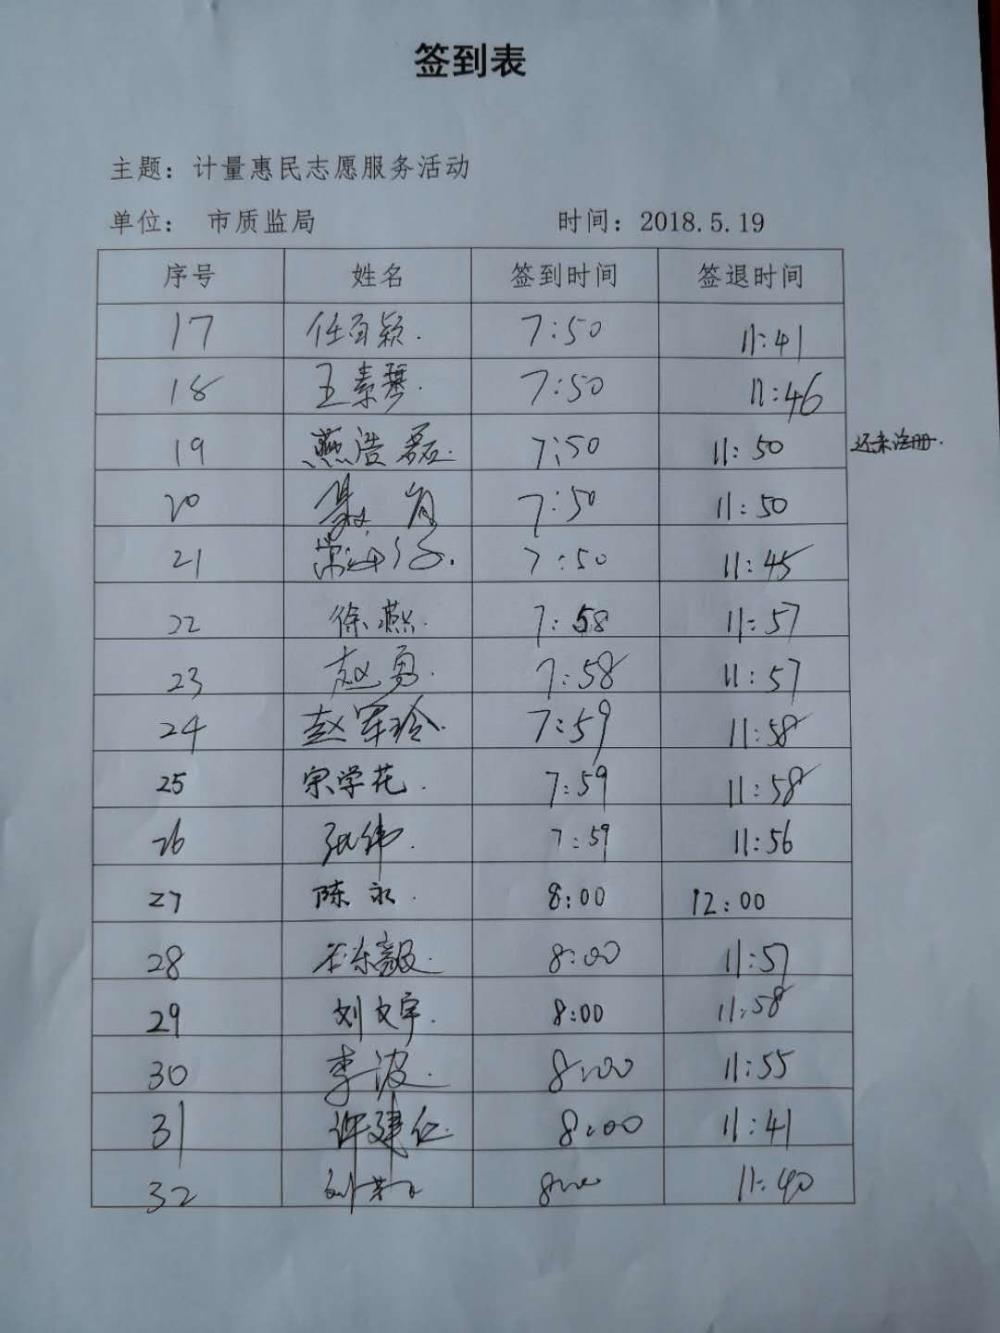 签到表
主题：计量惠民志愿服务活动
单位： 市质监局 时间：2018.5.19
序号 姓名 签到时间 签退时间
17 任百颖. 7:50 11:41
18 王素琴. 7:50 11:46
19 燕浩磊. 7:50 11:50 还未注册.
20 7:50 11:50
21 7:50 11:45
22 徐燕. 7:58 11:57
23 赵勇. 7:58 11:57
24 赵军玲. 7:59 11:58
25 宋学花. 7:59 11:58
26 张伟. 7:59 11:56
27 陈永. 8:00 12:00
28 8:00 11:57
29 刘文宇. 8:00 11:58
30 李波. 8:00 11:55
31 许建仁. 8:00 11:41
32 8:00 11:40